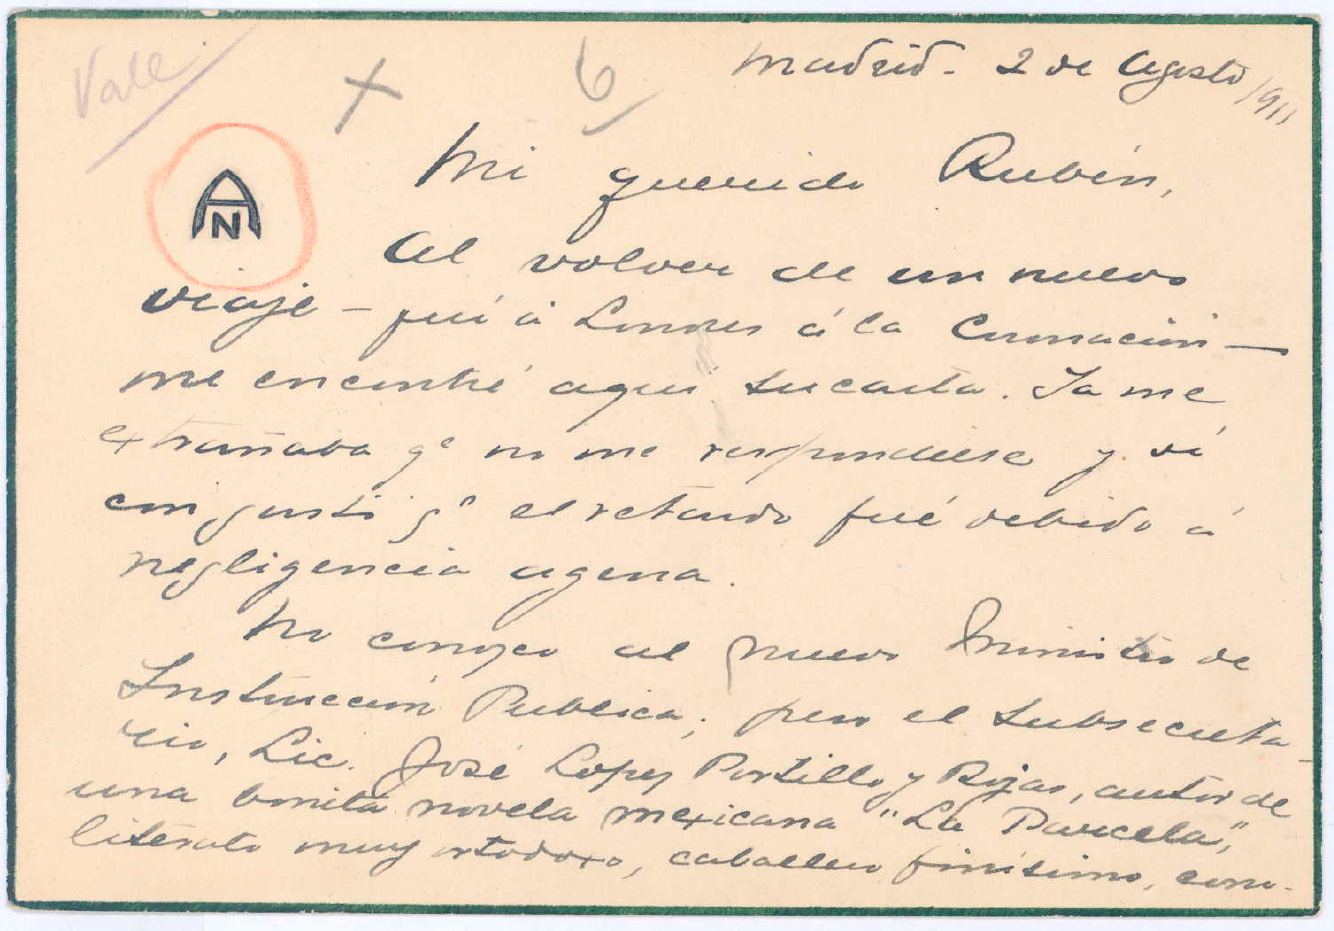 Vale
6
Madrid - 2 de Agosto/911
AN
Mi querido Rubén,
Al volver de un nuevo
viaje - fuí á Londres á la Coronación -
me encontré aquí su carta. Ya me
extrañaba qe no me respondiese y ví
con gusto qe el retardo fué debido á
negligencia agena.
No conozco al nuevo Ministro de
Instrucción Publica; pero el subsecreta-
rio, Lic. José Lopez Portillo y Rojas, autor de
una bonita novela mexicana "La Parcela",
literato muy ortodoxo, caballero finísimo, cono-